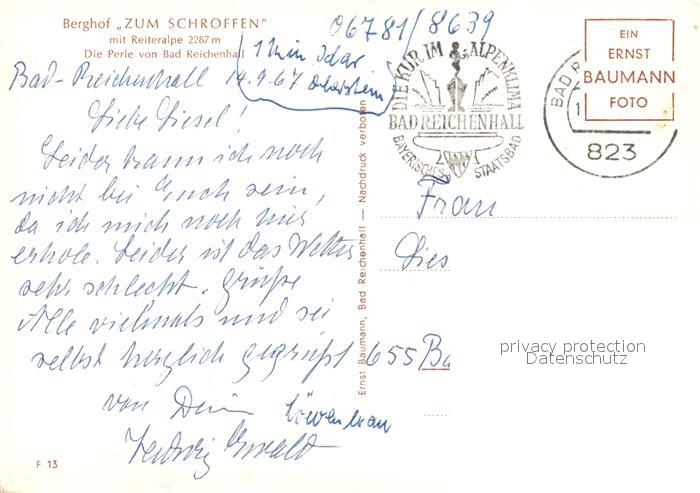 Berghof „ZUM SCHROFFEN"
mit Reiteralpe 2287 m
Die Perle von Bad Reichenhall
06781/8639
1 Min Idar
Oberstein
Bad-Reichenhall 14.9.67
Liebe Liesel!
Leider kann ich noch
nicht bei Euch sein,
da ich mich noch hier
erhole. Leider ist das Wetter
sehr schlecht. Grüße
Alle vielmals und sei
selbst herzlich gegrüßt
von Deinem
Löwenbrau
Ewald
F 13
Ernst Baumann, Bad Reichenhall — Nachdruck verboten
DIE KUR IM ALPENKLIMA
BAD REICHENHALL
BAYERISCHES STAATSBAD
BAD R
823
EIN
ERNST
BAUMANN
FOTO
Frau
Lies
655 Ba
privacy protection
Datenschutz